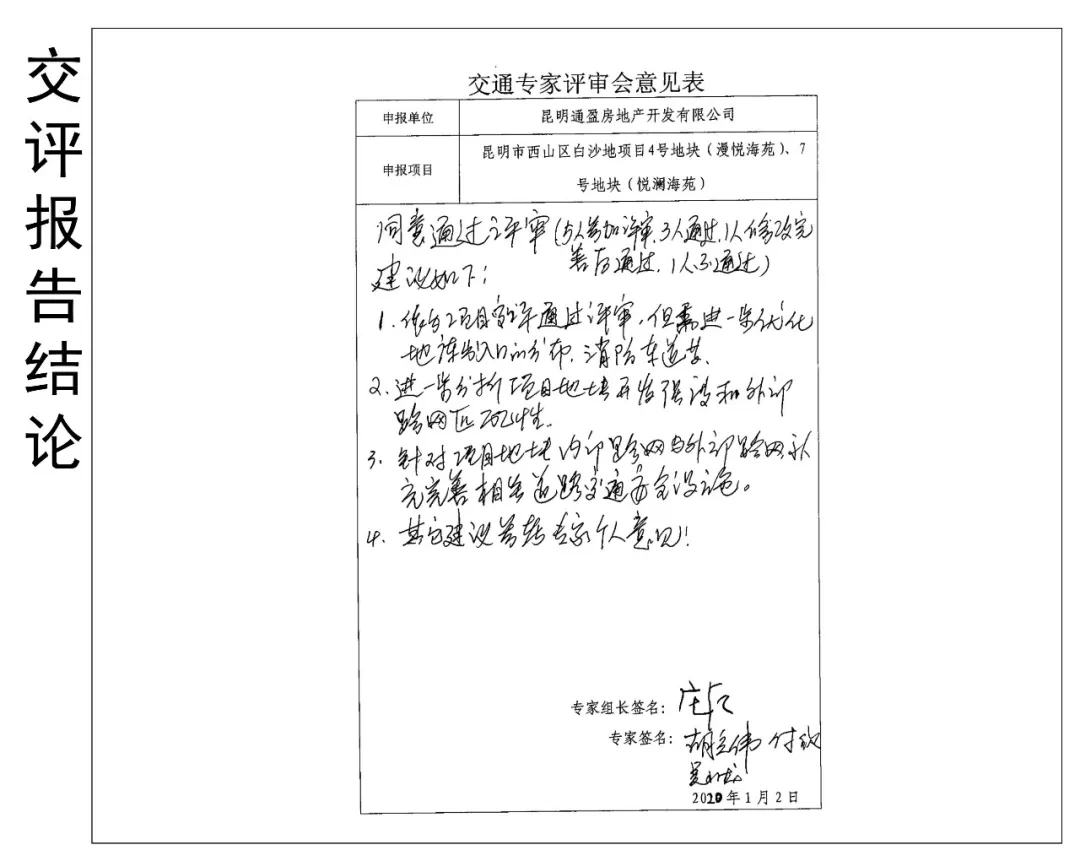 交评报告结论
交通专家评审会意见表
申报单位
昆明通盈房地产开发有限公司
申报项目
昆明市西山区白沙地项目4号地块（漫悦海苑）、7
号地块（悦澜海苑）
同意通过评审（5人参加评审，3人通过，1人修改完
善后通过，1人不通过）
建议如下：
1. 项目交评通过评审，但需进一步优化
地块出入口的分布、消防车道等.
2. 进一步分析项目地块开发强度和外部
路网匹配性.
3. 针对项目地块内部路网与外部路网补
充完善相关道路交通安全设施。
4. 其它建议专家个人意见！
专家组长签名：
专家签名：胡立伟
2020年1月2日